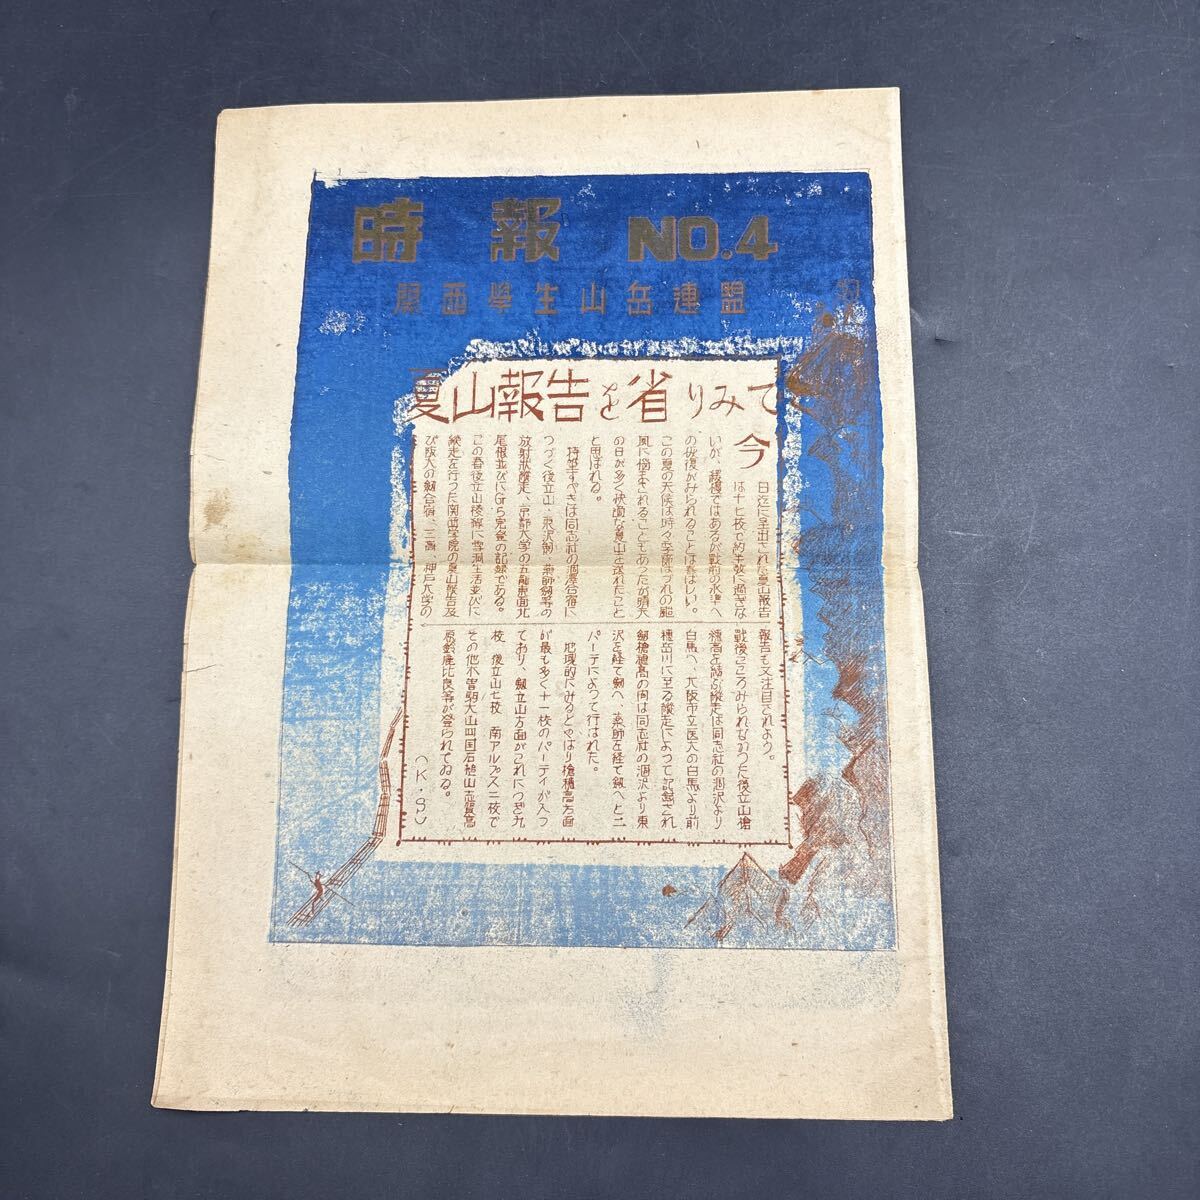 時報 NO.4
関西學生山岳連盟
夏山報告を省りみて
今
日迄に呈出された夏山報告
は十七校で約半数に過ぎな
いが、緩慢ではあるが戦前の水準へ
の恢復がみられることは喜ばしい。
この夏の天候は時々季節はづれの颱
風に悩まされることもあったが晴天
の日が多く快適な夏山を送れたこと
と思はれる。
特筆すべきは同志社の涸澤合宿に
つづく後立山、東沢剱、薬師剱等の
放射状縦走、京都大学の五龍東面北
尾根並びにG5完登の記録である。
この春後立山稜線に雪洞生活並びに
縦走を行った関西学院の夏山報告及
び阪大の剱合宿、三高、神戸大学の
報告も又注目されよう。
戦後こころみられなかつた後立山槍
穂高を結ぶ縦走は同志社の涸沢より
白馬へ、大阪市立医大の白馬より前
穂岳川に至る縦走によつて記録され
剱槍穂高の間は同志社の涸沢より東
沢を経て剱へ、薬師を経て剱へと二
パーテによって行はれた。
地域的にみるとやはり槍穂高方面
が最も多く十一校のパーティが入つ
ており、剱立山方面がこれにつぎ九
校 後立山七校 南アルプス二校で
その他木曽駒大山四国石槌山志賀高
原鈴鹿比良等が登られてゐる。
(K・S)